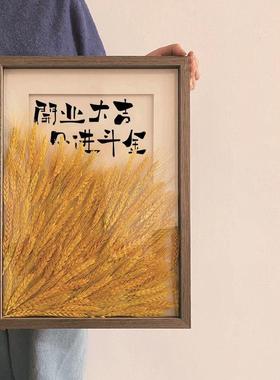 開业大吉
日进斗金